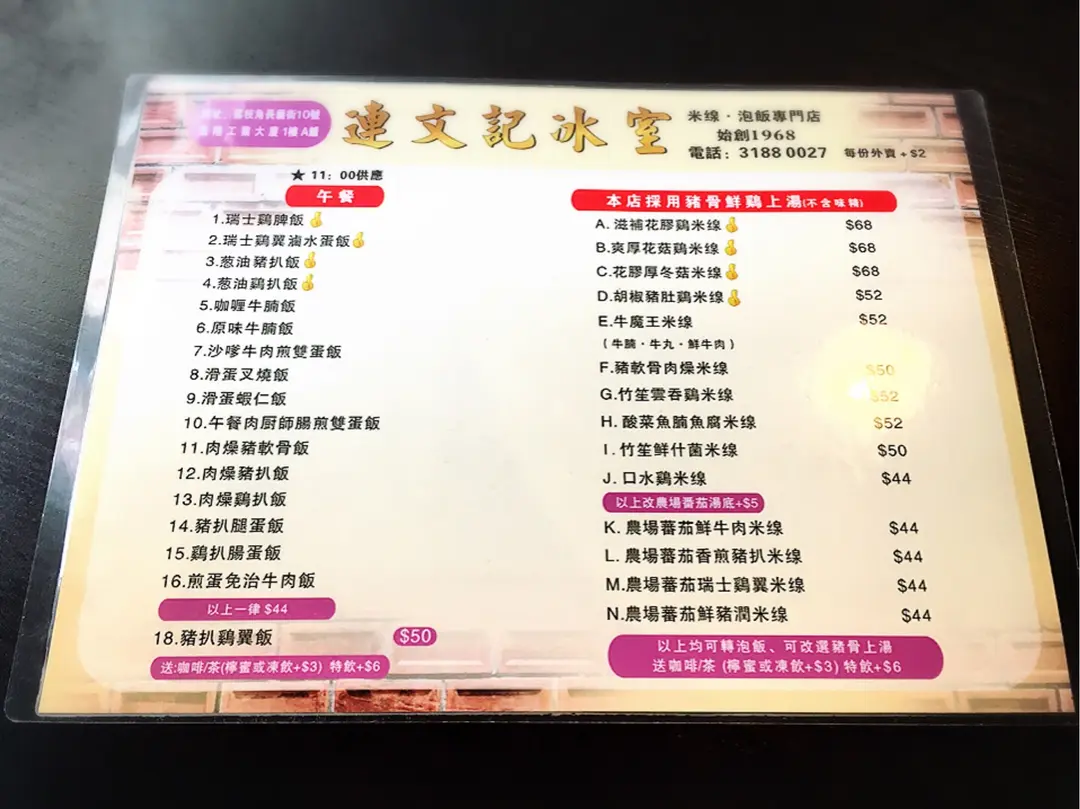 地址：荔枝角長義街10號
工業大廈1樓A舖
連文記冰室
米线·泡飯專門店
始創1968
電話：3188 0027 每份外賣+$2
★ 11：00供應
午餐
1.瑞士鷄脾飯
2.瑞士鷄翼滷水蛋飯
3.葱油豬扒飯
4.葱油鷄扒飯
5.咖喱牛腩飯
6.原味牛腩飯
7.沙嗲牛肉煎雙蛋飯
8.滑蛋叉燒飯
9.滑蛋蝦仁飯
10.午餐肉厨師腸煎雙蛋飯
11.肉燥豬軟骨飯
12.肉燥豬扒飯
13.肉燥鷄扒飯
14.豬扒腿蛋飯
15.鷄扒腸蛋飯
16.煎蛋免治牛肉飯
以上一律 $44
18.豬扒鷄翼飯 $50
送:咖啡/茶(檸蜜或凍飲+$3) 特飲+$6
本店採用豬骨鮮鷄上湯(不含味精)
A. 滋補花膠鷄米线 $68
B.爽厚花菇鷄米线 $68
C.花膠厚冬菇米线 $68
D.胡椒豬肚鷄米线 $52
E.牛魔王米线 $52
（牛腩·牛丸·鮮牛肉）
F.豬軟骨肉燥米线 $50
G.竹笙雲吞鷄米线 $52
H. 酸菜魚腩魚腐米线 $52
I. 竹笙鮮什菌米线 $50
J. 口水鷄米线 $44
以上改農場蕃茄湯底+$5
K. 農場蕃茄鮮牛肉米线 $44
L. 農場蕃茄香煎豬扒米线 $44
M.農場蕃茄瑞士鷄翼米线 $44
N.農場蕃茄鮮豬潤米线 $44
以上均可轉泡飯、可改選豬骨上湯
送咖啡/茶 (檸蜜或凍飲+$3) 特飲+$6